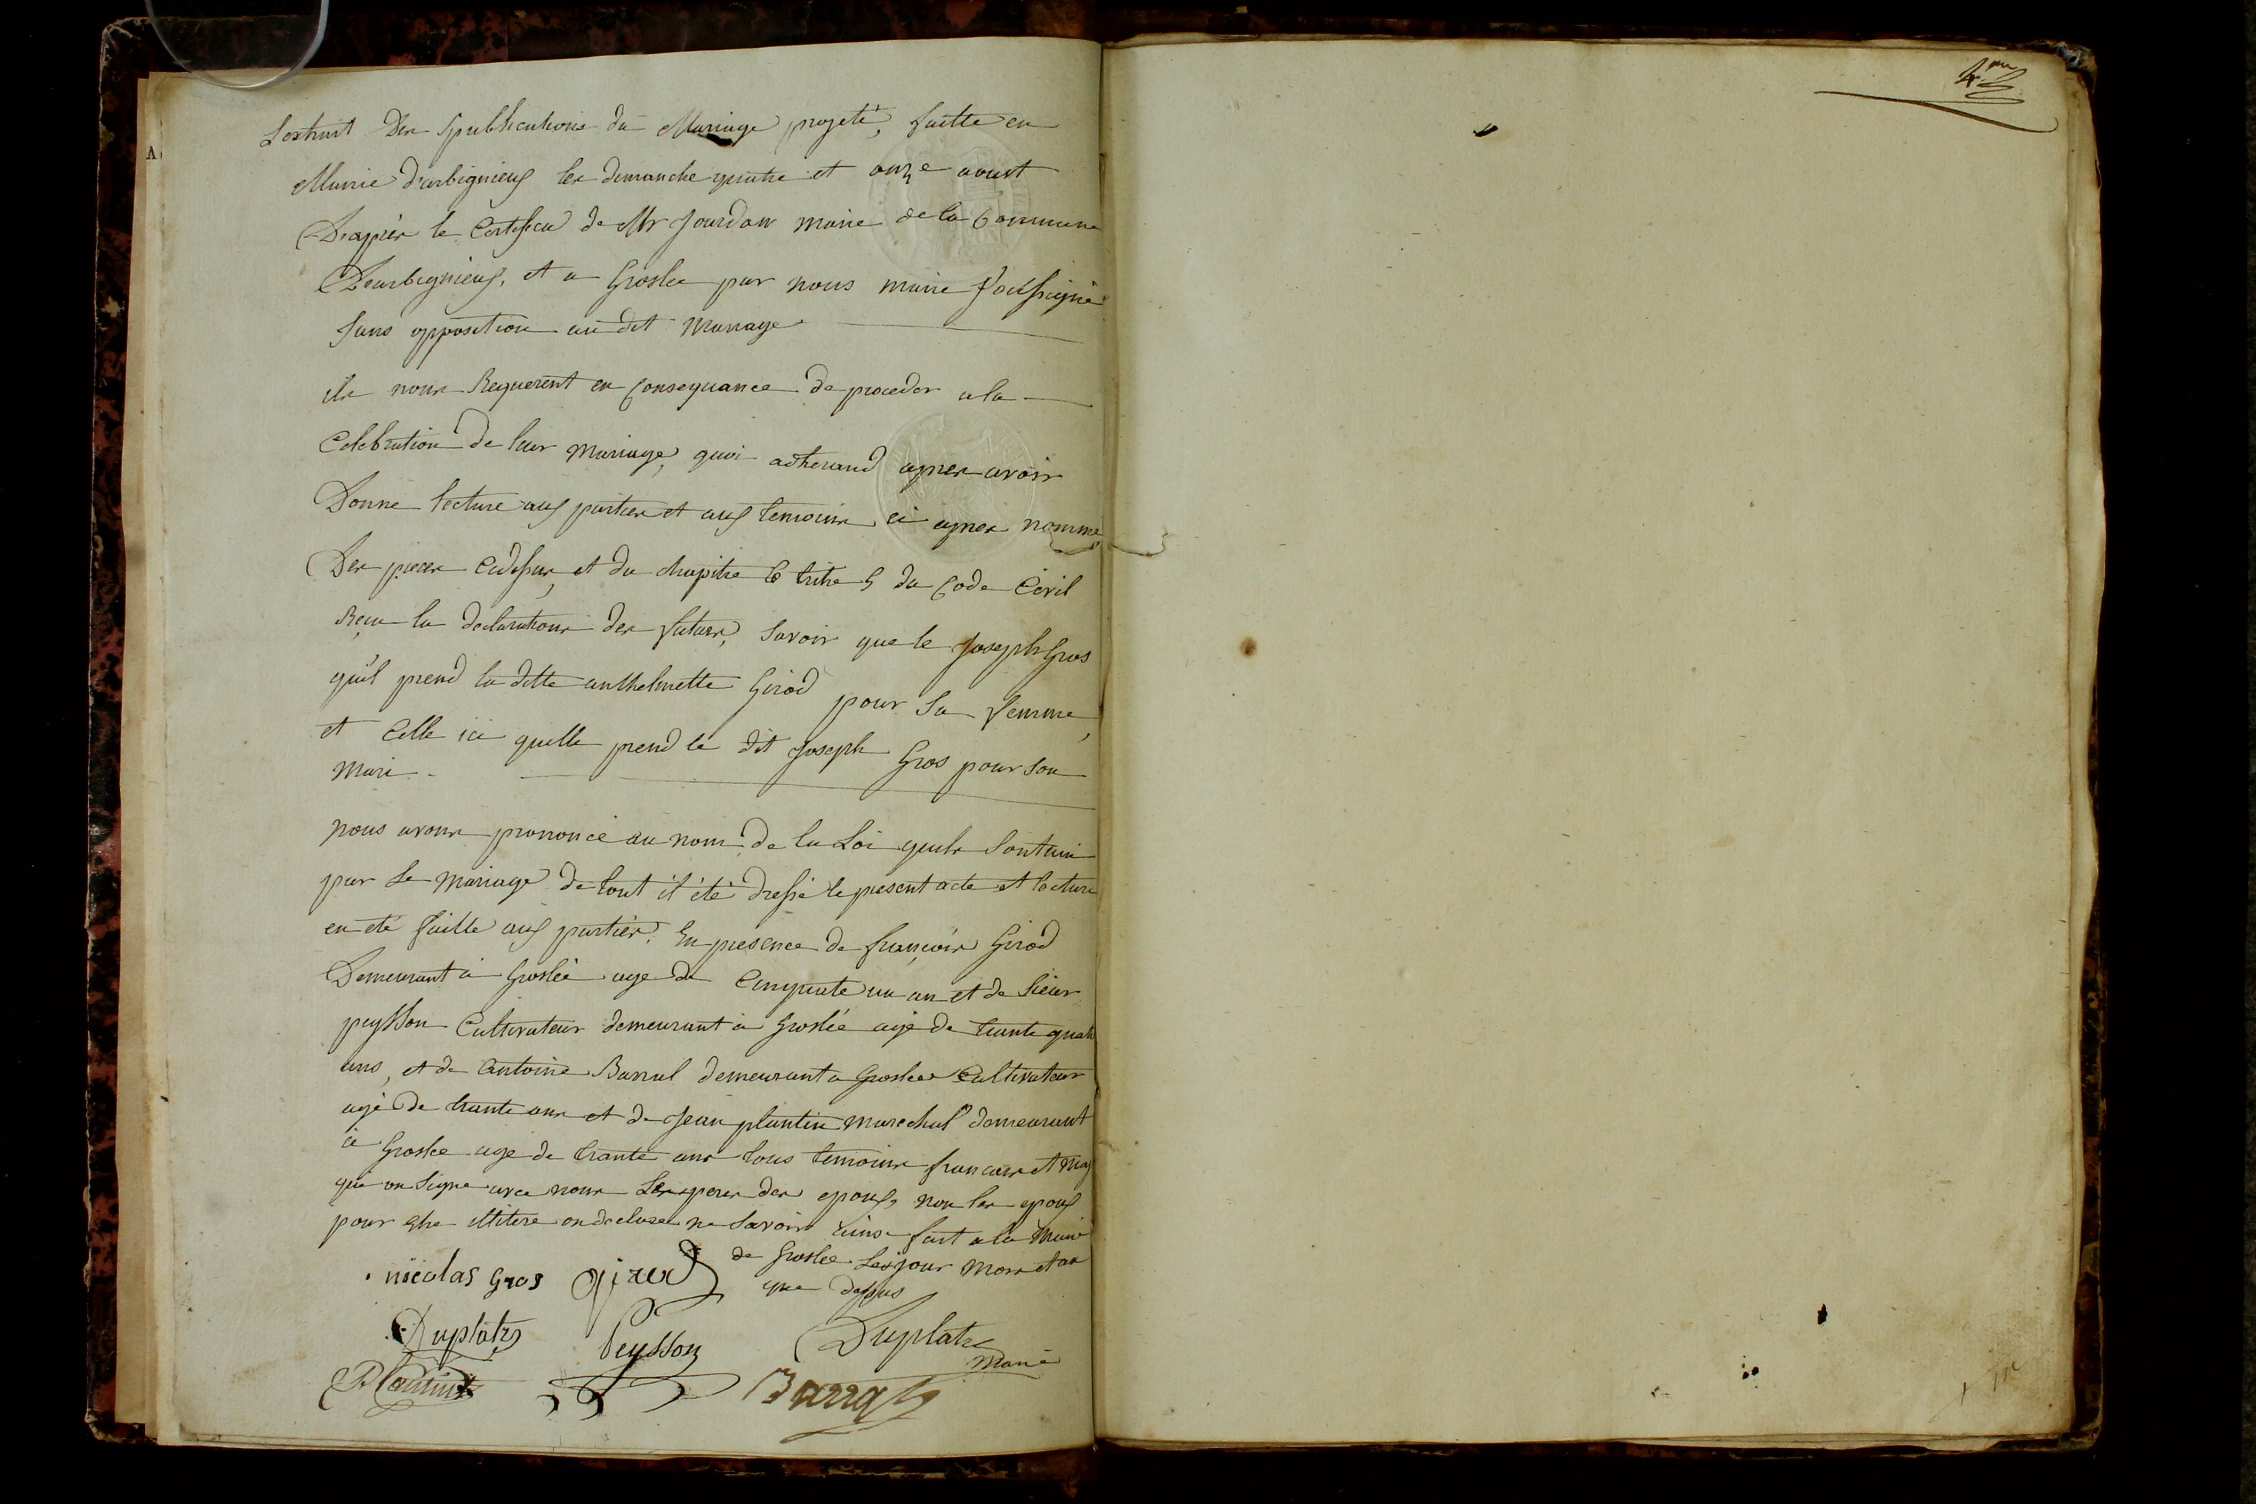 L'extrait Des publications du Mariage projeté, faitte en
Mairie d'arbignieux les dimanche quatre et onze aoust
D'apprès le Certificat de Mr Jourdan maire de la Commune
D'arbignieux, et a Groslee par nous maire soussigné
sans opposition au dit mariage
ils nous Requerent en consequance de proceder a la
Celebration de leur mariage, quoi adherand apres avoir
Donné lecture aux parties et aux temoins ci apres nommé
Des pieces cidessus, et du chapitre 6 titre 5 du Code Civil
Reçu la declarations des futurs, savoir que le Joseph Gros
qu'il prend la ditte anthelmette Girod pour sa femme,
et Celle ici quelle prend le dit Joseph Gros pour son
mari
nous avons prononcé au nom de la Loi quils sont uni
par le mariage de tout il été dressé le present acte et lecture
en été faitte aux parties. En presence de françois Girod
Demeurant à Groslée age de Cinquate un an et de sieur
peysson Cultivateur demeurant à Groslée agé de trante quatr
ans, et de Antoine Barral demeurant a Groslee Cultivateur
agé de trante ans et de Jean plantin marechal demeurant
à Groslee age de trante ans tous temoins francais et maj
qui on signe avec nous Les peres des epoux, non les epoux
pour etre illitere on declaré ne savoir ainsi fait a la mairi
de Groslee Les jour mois et an
que dessus
nicolas Gros Girod
Duplatre Peysson Duplatre
maire
Plantin Barral
4me